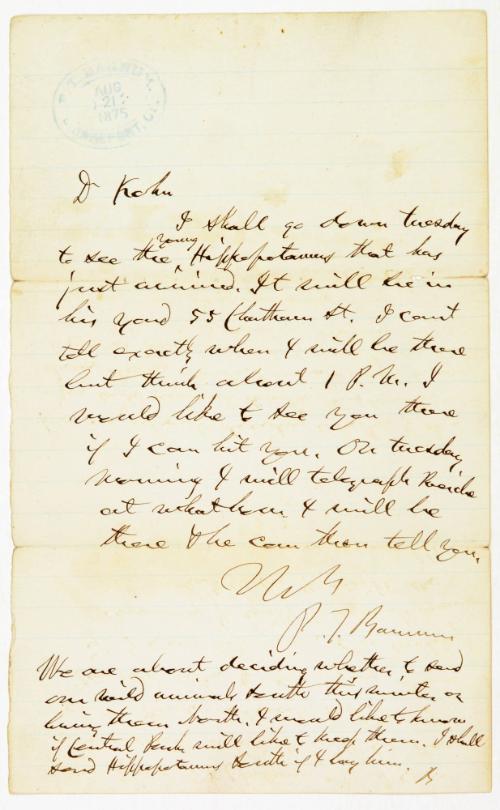 P. T. BARNUM,
AUG
21
1875
BRIDGEPORT, CT.
D Kohn
I shall go down tuesday
young
to see the Hippopotamus that has
just arrived. It will be in
his yard 55 Chatham St. I cant
tell exactly when I will be there
but think about 1 P.M. I
would like to see you there
if I can hit you. On tuesday
morning I will telegraph Reiche
at what hour I will be
there & he can then tell you.
P. T. Barnum
We are about deciding whether to send
our wild animals South this winter or
bring them North. I would like to know
if Central Park will like to keep them. I shall
send Hippopotamus South if I buy him.
B